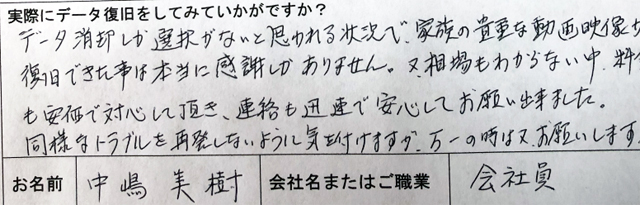 実際にデータ復旧をしてみていかがですか?
データ消却しか選択がないと思われる状況で、家族の貴重な動画映像が
復旧できた事は本当に感謝しかありません。又相場もわからない中、料金
も安価で対心して頂き、連絡も迅速で安心してお願い出来ました。
同様なトラブルを再発しないように気を付けますが、万一の時は又、お願いします
お名前 中嶋 美樹 会社名またはご職業 会社員